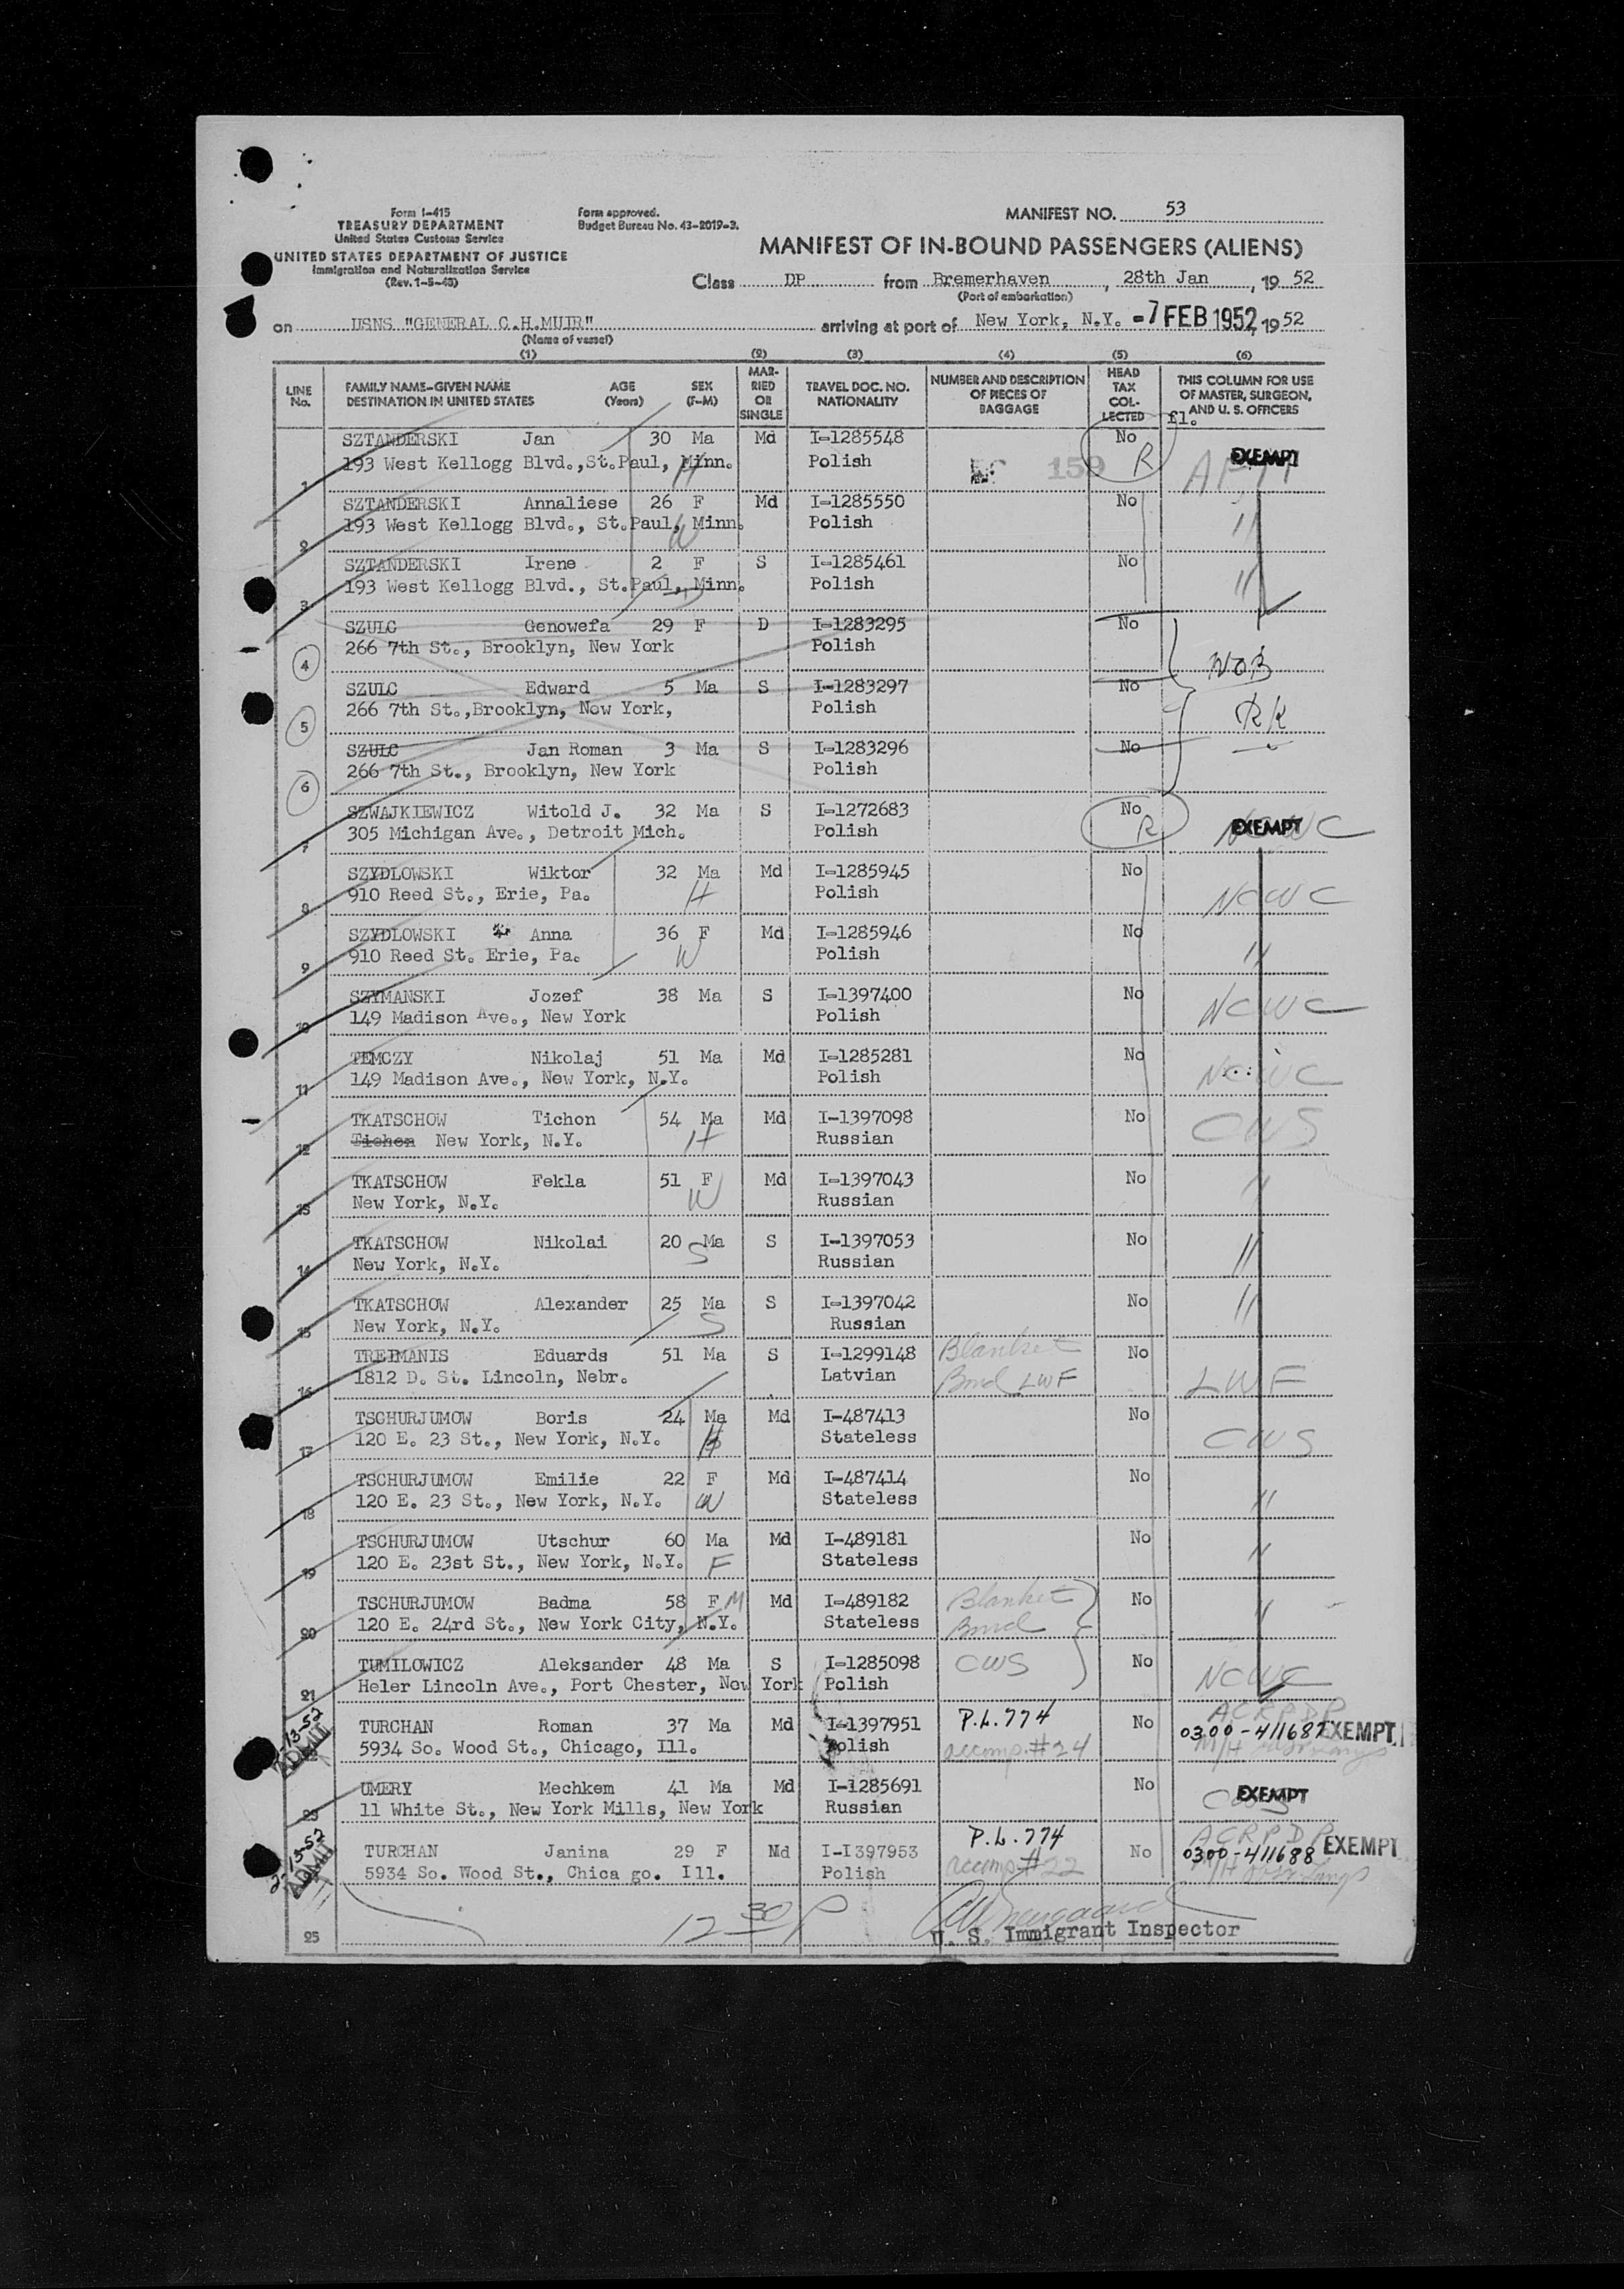 Form I-415
TREASURY DEPARTMENT
United States Customs Service
UNITED STATES DEPARTMENT OF JUSTICE
Immigration and Naturalization Service
(Rev. 1-5-48)
Form approved.
Budget Bureau No. 43-R019-3.
MANIFEST NO. 53
MANIFEST OF IN-BOUND PASSENGERS (ALIENS)
Class DP from Bremerhaven, 28th Jan, 19 52
(Port of embarkation)
on USNS "GENERAL C.H.MUIR" arriving at port of New York, N.Y. -7 FEB 1952, 19 52
(Name of vessel)
(1) (2) (3) (4) (5) (6)
LINE No. FAMILY NAME-GIVEN NAME DESTINATION IN UNITED STATES AGE (Years) SEX (F-M) MARRIED OR SINGLE TRAVEL DOC. NO. NATIONALITY NUMBER AND DESCRIPTION OF PIECES OF BAGGAGE HEAD TAX COLLECTED THIS COLUMN FOR USE OF MASTER, SURGEON, AND U. S. OFFICERS
fl.
SZTANDERSKI Jan 30 Ma Md I-1285548 No EXEMPT
1 193 West Kellogg Blvd.,St.Paul, Minn. H Polish 159 R
SZTANDERSKI Annaliese 26 F Md I-1285550 No
2 193 West Kellogg Blvd., St.Paul, Minn. W Polish "
SZTANDERSKI Irene 2 F S I-1285461 No
3 193 West Kellogg Blvd., St.Paul, Minn. Polish "
SZULC Genowefa 29 F D I-1283295 No
4 266 7th St., Brooklyn, New York Polish NOB
SZULC Edward 5 Ma S I-1283297 No
5 266 7th St.,Brooklyn, New York, Polish RK
SZULC Jan Roman 3 Ma S I-1283296 No
6 266 7th St., Brooklyn, New York Polish
SZWAJKIEWICZ Witold J. 32 Ma S I-1272683 No
7 305 Michigan Ave., Detroit Mich. Polish R EXEMPT NCWC
SZYDLOWSKI Wiktor 32 Ma Md I-1285945 No
8 910 Reed St., Erie, Pa. H Polish NCWC
SZYDLOWSKI Anna 36 F Md I-1285946 No
9 910 Reed St. Erie, Pa. W Polish "
SZYMANSKI Jozef 38 Ma S I-1397400 No
10 149 Madison Ave., New York Polish NCWC
TEMCZY Nikolaj 51 Ma Md I-1285281 No
11 149 Madison Ave., New York, N.Y. Polish NCWC
TKATSCHOW Tichon 54 Ma Md I-1397098 No
12 Tichon New York, N.Y. H Russian CWS
TKATSCHOW Fekla 51 F Md I-1397043 No
13 New York, N.Y. W Russian "
TKATSCHOW Nikolai 20 Ma S I-1397053 No
14 New York, N.Y. S Russian "
TKATSCHOW Alexander 25 Ma S I-1397042 No
15 New York, N.Y. S Russian "
TREIMANIS Eduards 51 Ma S I-1299148 Blanket No
16 1812 D. St. Lincoln, Nebr. Latvian Bond LWF LWF
TSCHURJUMOW Boris 24 Ma Md I-487413 No
17 120 E. 23 St., New York, N.Y. H Stateless CWS
TSCHURJUMOW Emilie 22 F Md I-487414 No
18 120 E. 23 St., New York, N.Y. W Stateless "
TSCHURJUMOW Utschur 60 Ma Md I-489181 No
19 120 E. 23st St., New York, N.Y. F Stateless "
TSCHURJUMOW Badma 58 F M Md I-489182 Blanket No
20 120 E. 24rd St., New York City, N.Y. Stateless Bond "
TUMILOWICZ Aleksander 48 Ma S I-1285098 CWS No
21 Heler Lincoln Ave., Port Chester, New York Polish NCWC
TURCHAN Roman 37 Ma Md I-1397951 P.L.774 No ACRPDP 0300-411687 EXEMPT
5934 So. Wood St., Chicago, Ill. Polish accomp. #24
UMERY Mechkem 41 Ma Md I-1285691 No EXEMPT
23 11 White St., New York Mills, New York Russian CWS
TURCHAN Janina 29 F Md I-I397953 P.L.774 No ACRPDP 0300-411688 EXEMPT
5934 So. Wood St., Chica go. Ill. Polish accomp #22
25 12 30 P
U. S. Immigrant Inspector